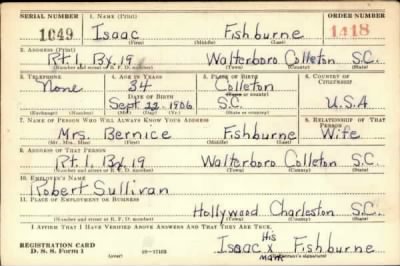 SERIAL NUMBER 1. NAME (Print) ORDER NUMBER
1049 Isaac Fishburne 1418
(First) (Middle) (Last)
2. ADDRESS (Print)
Rt. 1, Bx. 19 Walterboro Colleton S.C.
(Number and street or R. F. D. number) (Town) (County) (State)
3. TELEPHONE 4. AGE IN YEARS 5. PLACE OF BIRTH 6. COUNTRY OF CITIZENSHIP
None 34 Colleton
DATE OF BIRTH (Town or county)
Sept 22-1906 S.C. U.S.A
(Exchange) (Number) (Mo.) (Day) (Yr.) (State or country)
7. NAME OF PERSON WHO WILL ALWAYS KNOW YOUR ADDRESS 8. RELATIONSHIP OF THAT PERSON
Mrs. Bernice Fishburne Wife
(Mr., Mrs., Miss) (First) (Middle) (Last)
9. ADDRESS OF THAT PERSON
Rt. 1, Bx. 19 Walterboro Colleton S.C.
(Number and street or R. F. D. number) (Town) (County) (State)
10. EMPLOYER'S NAME
Robert Sullivan
11. PLACE OF EMPLOYMENT OR BUSINESS
Hollywood Charleston S.C.
(Number and street or R. F. D. number) (Town) (County) (State)
I AFFIRM THAT I HAVE VERIFIED ABOVE ANSWERS AND THAT THEY ARE TRUE.
His
REGISTRATION CARD Isaac X Fishburne
D. S. S. Form 1 Mark